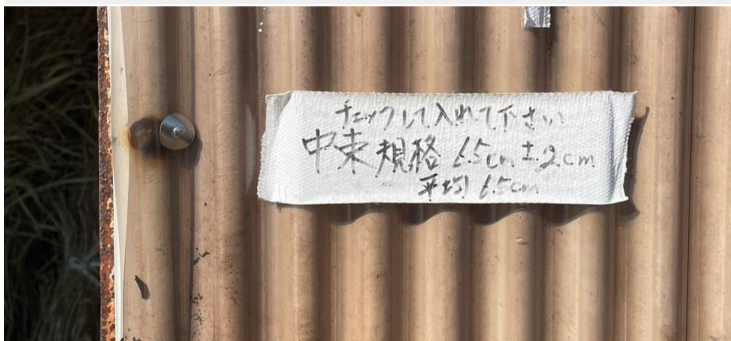 チェックして入れて下さい
中束規格 6.5cm ±.2cm
平均 6.5cm